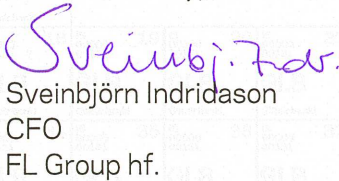 Sveinbj. Indr.
Sveinbjörn Indridason
CFO
FL Group hf.